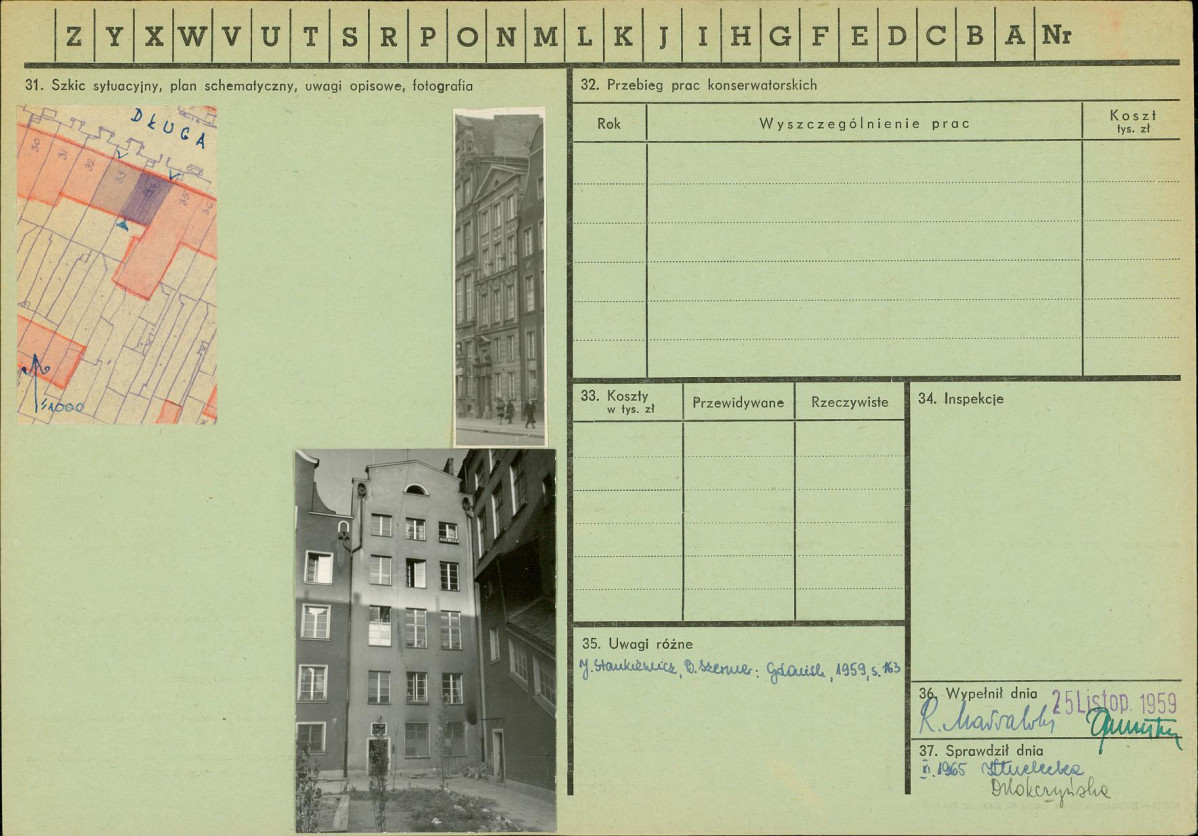 Z Y X W V U T S R P O N M L K J I H G F E D C B A Nr
31. Szkic sytuacyjny, plan schematyczny, uwagi opisowe, fotografia
DŁUGA
30
31
32
33
35
36
1:1000
32. Przebieg prac konserwatorskich
Rok
Wyszczególnienie prac
Koszt
tys. zł
33. Koszty
w tys. zł
Przewidywane
Rzeczywiste
34. Inspekcje
35. Uwagi różne
J. Stankiewicz, B. Szermer: Gdańsk, 1959, s. 163
36. Wypełnił dnia
25 Listop. 1959
R. Massalski
37. Sprawdził dnia
XI. 1965